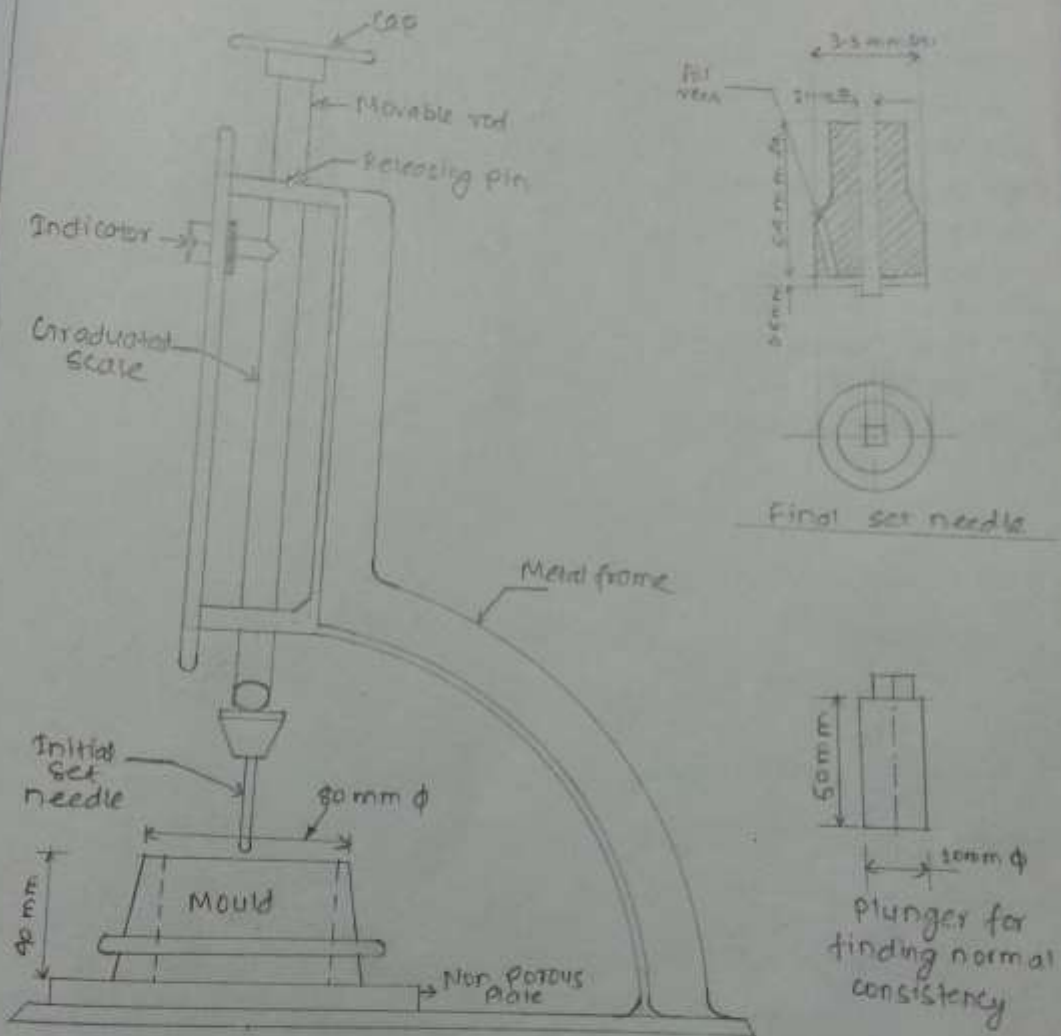 Cap
Movable rod
Releasing pin
Indicator
Graduated
scale
Metal frame
Initial
set
needle
80 mm ϕ
40 mm
Mould
Non Porous
Plate
Final set needle
50mm
10mm ϕ
Plunger for
finding normal
consistency